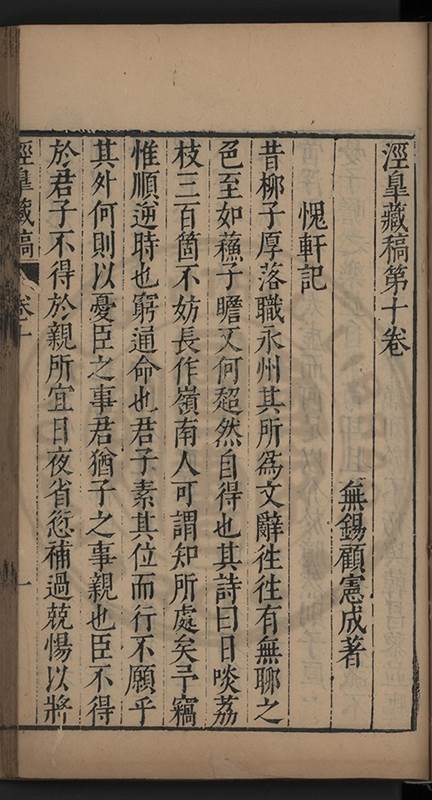 涇臯藏稿第十卷
無錫顧憲成著
愧軒記
昔柳子厚落職永州其所爲文辭徃徃有無聊之
色至如蘓子瞻又何超然自得也其詩曰日啖荔
枝三百箇不妨長作嶺南人可謂知所處矣予竊
惟順逆時也窮通命也君子素其位而行不願乎
其外何則以憂臣之事君猶子之事親也臣不得
於君子不得於親所宜日夜省愆補過兢惕以將
涇臯藏稿
卷十
一